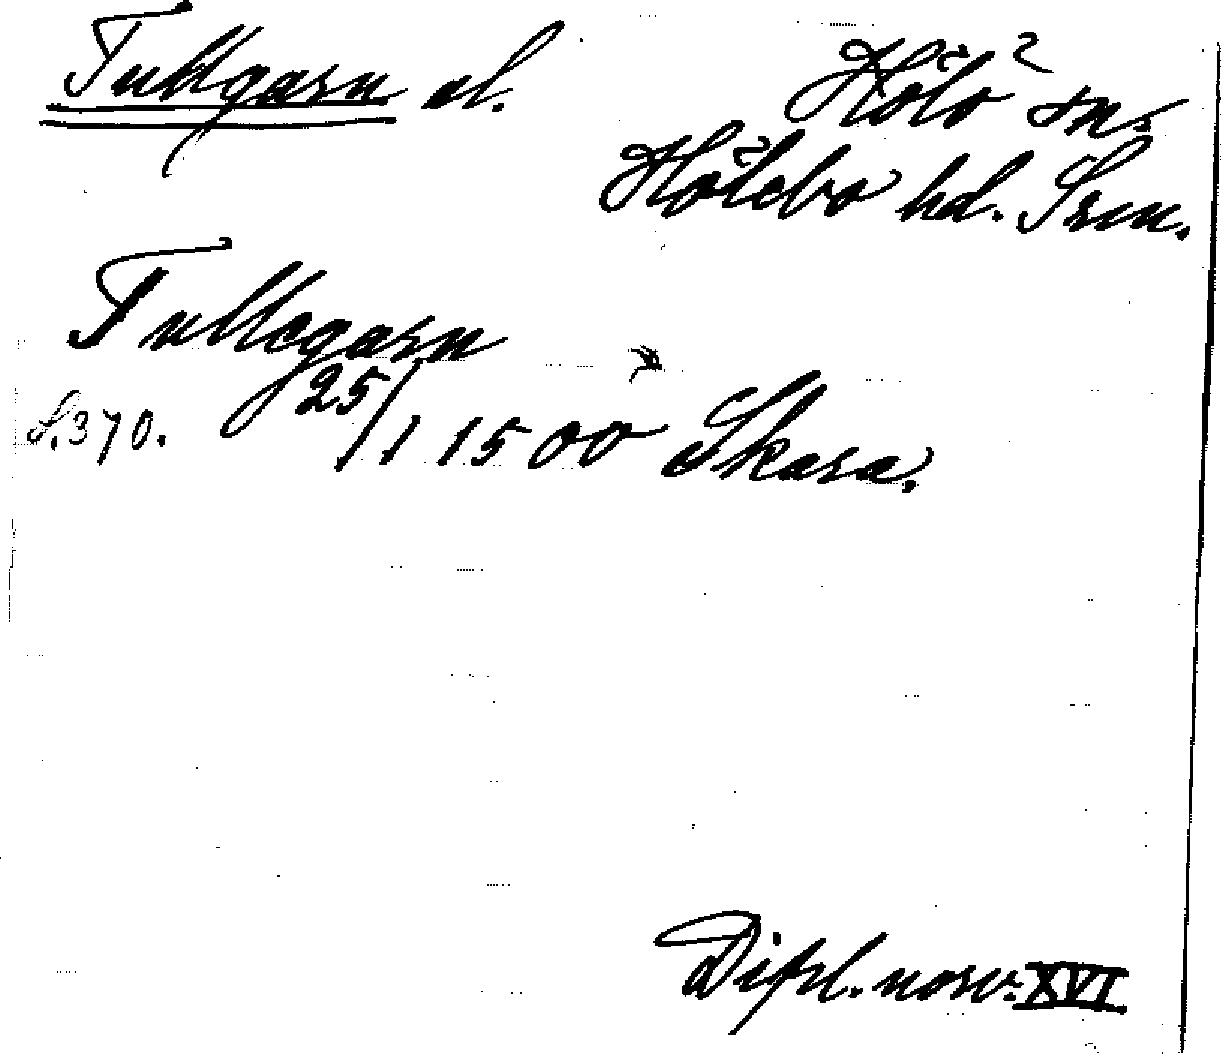 Tullgarn al.
Hölö sn.
Hölebo hd. Srm.
Tullegarn
S. 370. 25/1 1500 Skara.
Dipl. norv. XVI